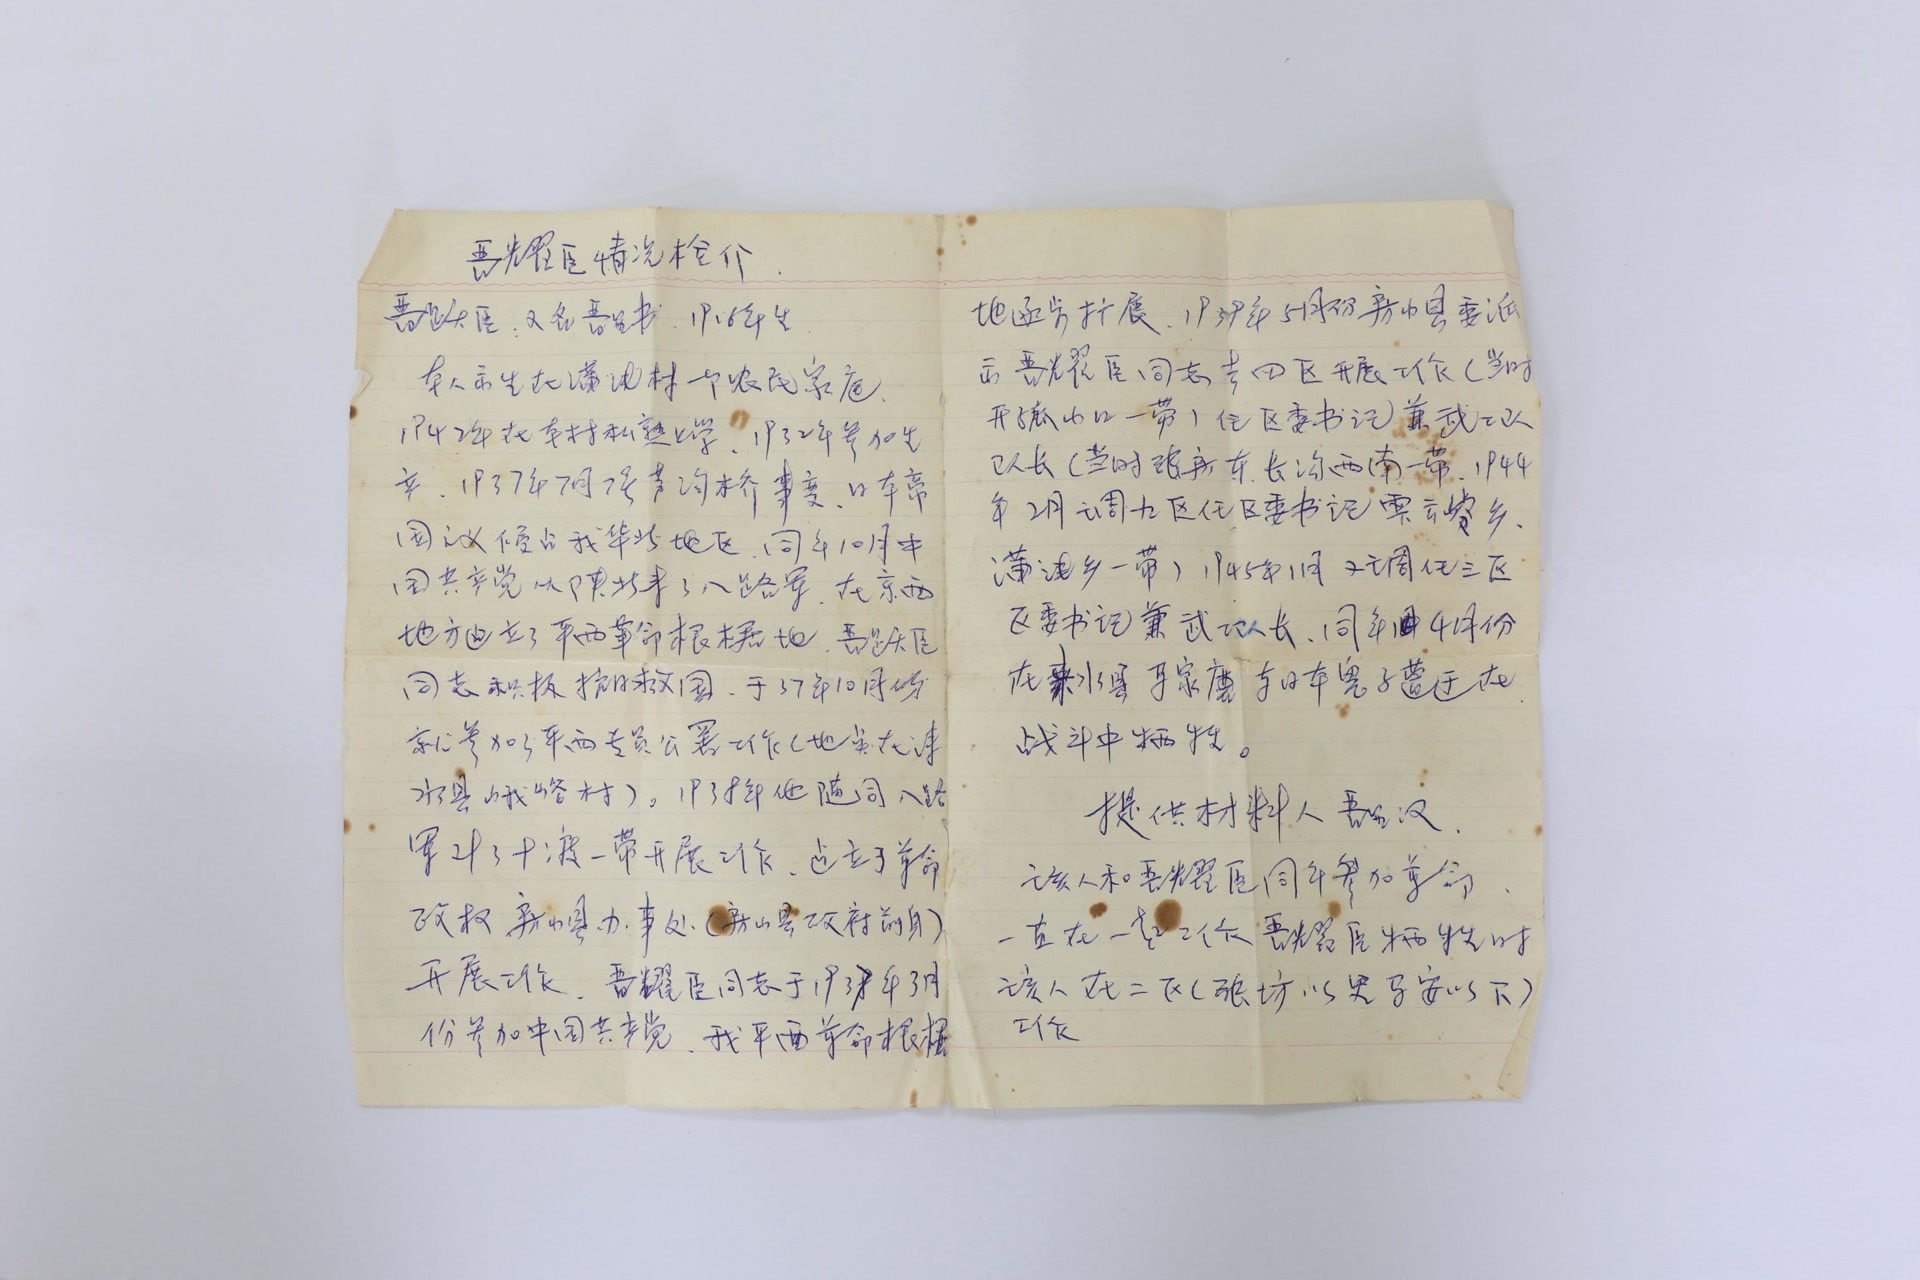 晋耀臣情况检介.
晋跃臣.又名晋玉书.1916年生.
本人出生在蒲洼村一个农民家庭.
1942年在本村私塾上学.1932年参加生
产.1937年7月7号芦沟桥事变.日本帝
国主义侵占我华北地区.同年10月中
国共产党从陕北来了八路军.在京西
地方建立了平西革命根据地.晋跃臣
同志积极抗日救国.于37年10月份
就参加了平西专员公署工作(地点在涞
水县峨峪村)。1938年他随同八路
军到了十渡一带开展工作.建立了革命
政权房山县办事处(房山县政府前身)
开展工作.晋耀臣同志于1938年3月
份参加中国共产党.我平西革命根据
地逐步扩展.1939年5月份房山县委派
出晋耀臣同志去四区开展工作(当时
开辟山口一带)任区委书记兼武工队
队长(当时张房车.长沟西南一带.1944
年2月之调九区任区委书记 乡.
蒲洼乡一带)1945年1月又调任三区
区委书记兼武工队长.同年4月份
在涞水县马家庄与日本鬼子遭迂在
战斗中牺牲。
提供材料人晋玉汉.
该人和晋耀臣同年参加革命.
一直在一起工作晋耀臣牺牲时
该人在二区(张坊以 安以下)
工作